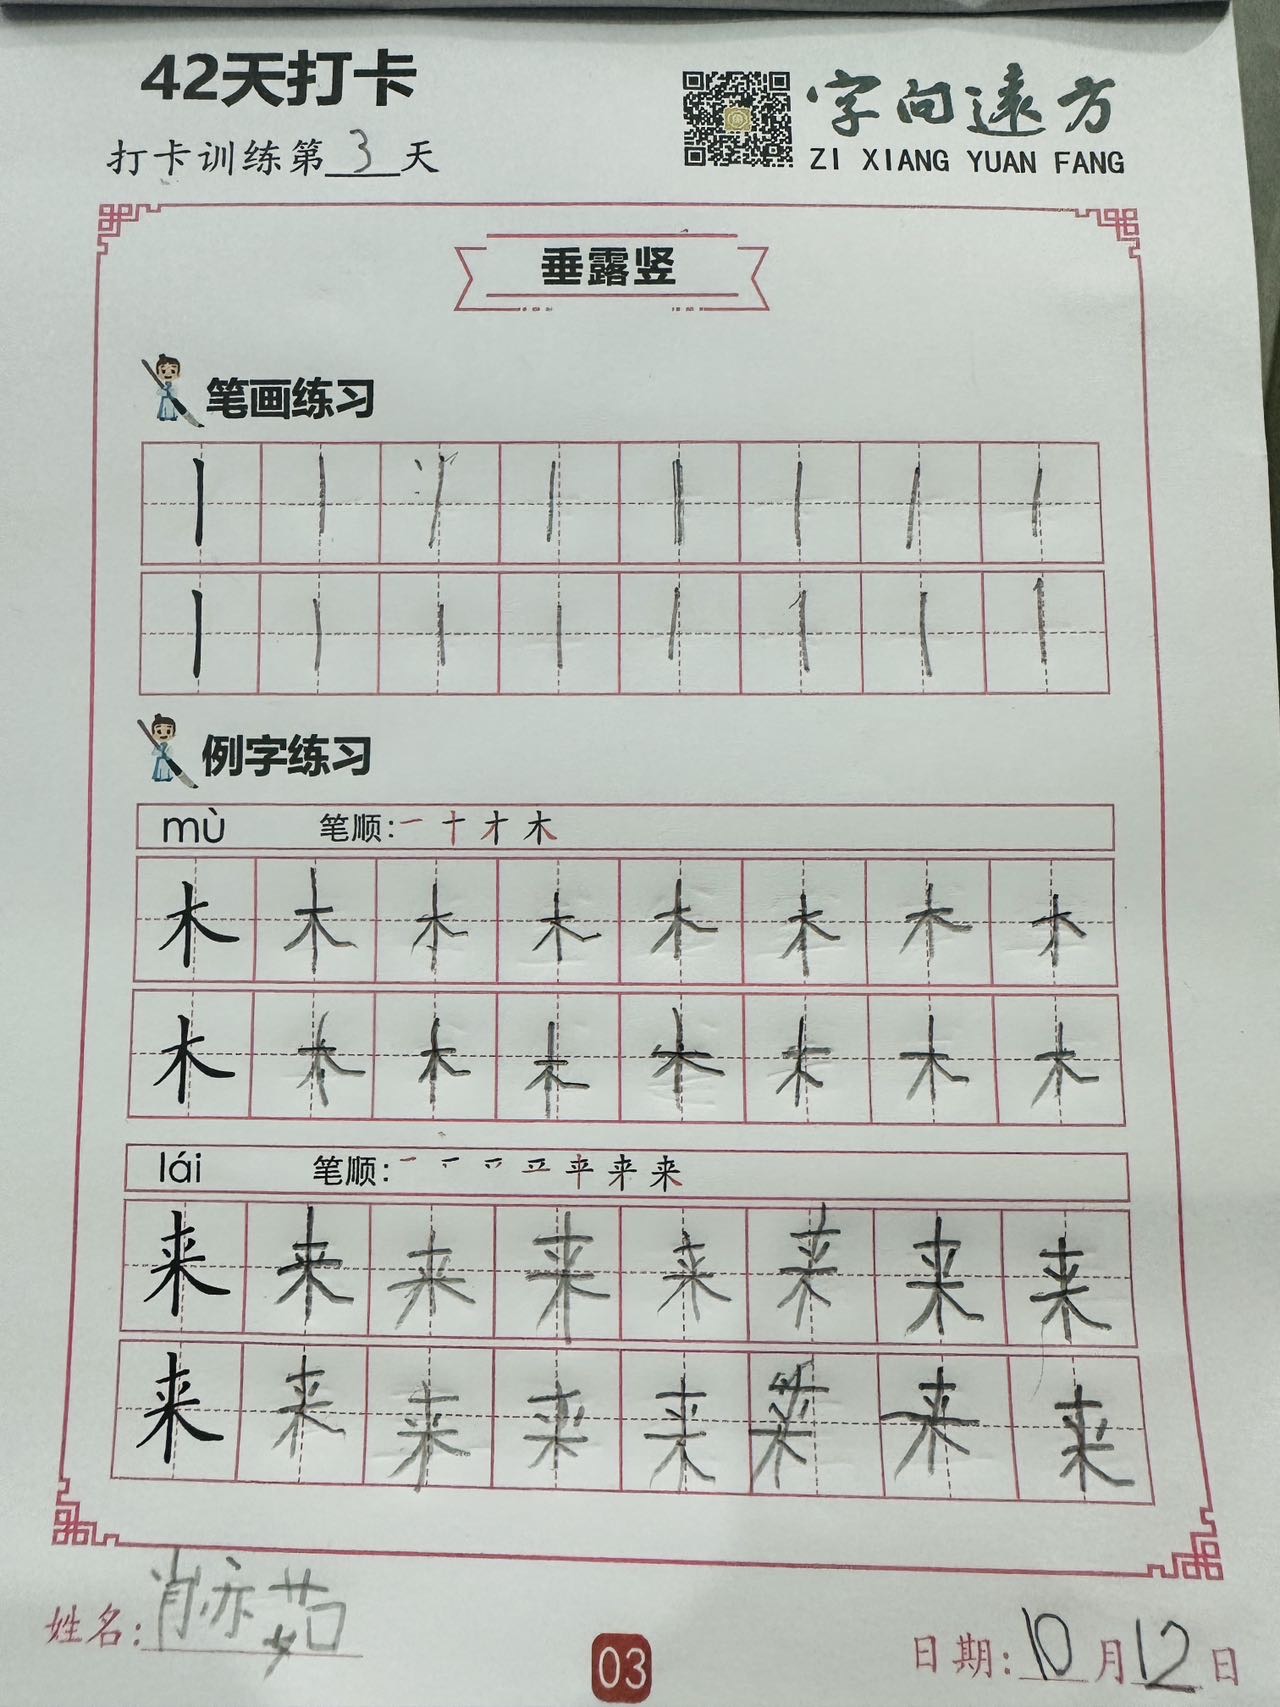 42天打卡
字向遠方
打卡训练第3天
ZI XIANG YUAN FANG
垂露竖
笔画练习
丨丨丨丨丨丨丨丨
丨丨丨丨丨丨丨丨
例字练习
mù 笔顺:一十才木
木木木木木木木木
木木木木木木木木
lái 笔顺:
来来来来来来来来
来来来来来来来来
姓名:肖亦茹
03
日期:10月12日